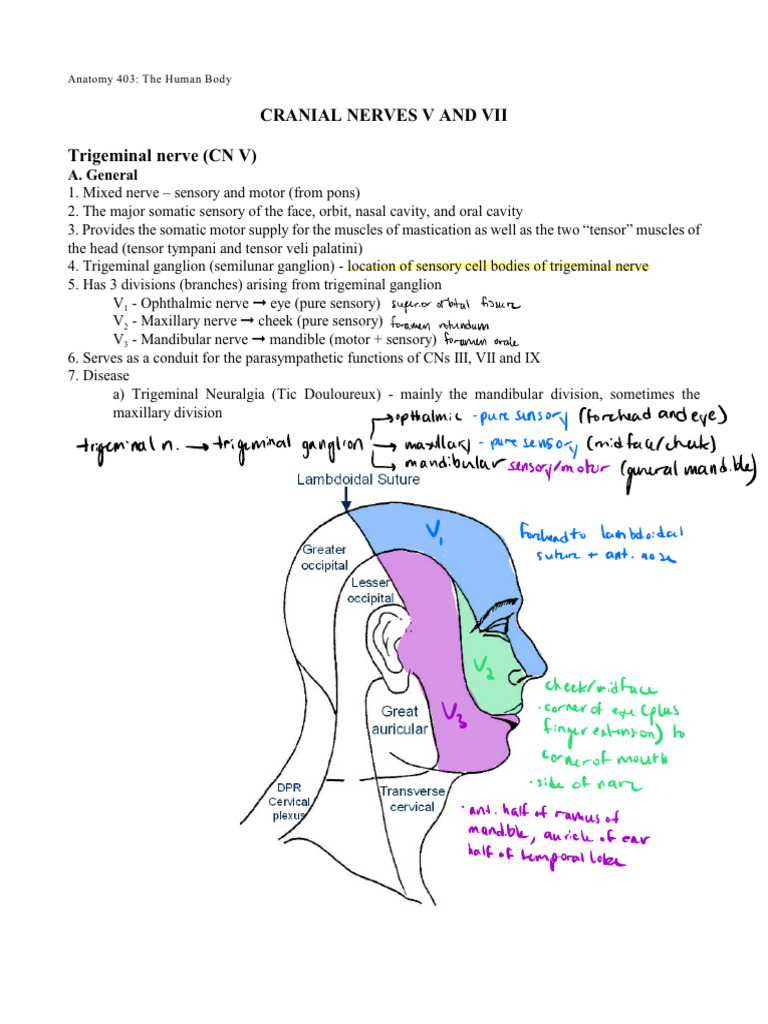 Anatomy 403: The Human Body
CRANIAL NERVES V AND VII
Trigeminal nerve (CN V)
A. General
1. Mixed nerve – sensory and motor (from pons)
2. The major somatic sensory of the face, orbit, nasal cavity, and oral cavity
3. Provides the somatic motor supply for the muscles of mastication as well as the two “tensor” muscles of
the head (tensor tympani and tensor veli palatini)
4. Trigeminal ganglion (semilunar ganglion) - location of sensory cell bodies of trigeminal nerve
5. Has 3 divisions (branches) arising from trigeminal ganglion
V₁ - Ophthalmic nerve ➞ eye (pure sensory) superior orbital fissure
V₂ - Maxillary nerve ➞ cheek (pure sensory) foramen rotundum
V₃ - Mandibular nerve ➞ mandible (motor + sensory) foramen ovale
6. Serves as a conduit for the parasympathetic functions of CNs III, VII and IX
7. Disease
a) Trigeminal Neuralgia (Tic Douloureux) - mainly the mandibular division, sometimes the
maxillary division
→ opthalmic - pure sensory (forehead and eye)
trigeminal n. → trigeminal ganglion → maxillary - pure sensory (midface/cheek)
→ mandibular sensory/motor (general mandible)
Lambdoidal Suture
V₁
forehead to lambdoidal
suture + ant. nose
Greater
occipital
Lesser
occipital
V₂
cheek/midface
· corner of eye (plus
finger extension) to
corner of mouth
· side of narz
V₃
Great
auricular
DPR
Cervical
plexus
Transverse
cervical
· ant. half of ramus of
mandible, auricle of ear
half of temporal lobe